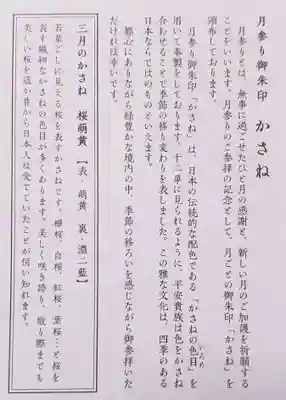 月参り御朱印 かさね
月参りとは、無事に過ごせたひと月の感謝と、新しい月のご加護を祈願する
ことをいいます。月参りのご参拝の記念として、月ごとの御朱印「かさね」を
頒布しております。
月参り御朱印「かさね」は、日本の伝統的な配色である「かさねの色目」を
いろめ
用いて奉製をしております。十二単に見られるように、平安貴族は色をかさね
合わせることで季節の移り変わりを表しました。この雅な文化は、四季のある
日本ならではのものといえます。
都心にありながら緑豊かな境内の中、季節の移ろいを感じながら御参拝いた
だければ幸いです。
三月のかさね 桜萌黄 【表・萌黄 裏・濃二藍】
若葉ごしに見える桜を表すかさねです。樺桜、白桜、紅桜、葉桜…と桜を
表す繊細なかさねの色目が多くあります。美しく咲き誇り、散り際までも
美しい桜を遥か昔から日本人は愛でていたことが伺い知れます。